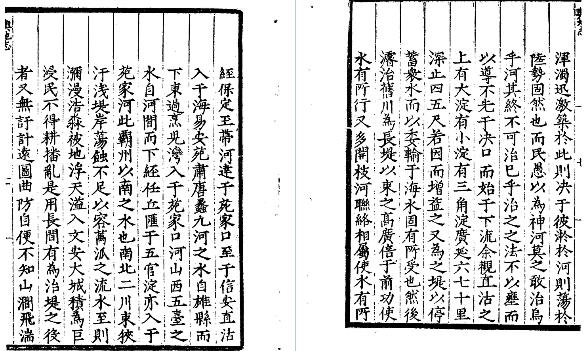 經保定王帶河達于苑家口至于信安直沽
入于海易安苑肅唐蠡九河之水自雄縣而
下東過烹児灣入于苑家口河山西五臺之
水自河間而下經任丘匯于五官淀亦入于
苑家河此霸州以南之水也南北二川東狹
汙淺堤岸蕩蝕不足以容萬派之流水至則
瀰漫浩蘇被地浮天溢入文安大城積為巨
浸民不得耕播亂是用長間有為治堤之後
者又無訏計遠圖曲防自便不知山澗飛湍
渾濁迅激築於此則决于彼淤於河則蕩於
陸勢固然也而民愚以為神河莫之敢治烏
乎河其終不可治巳乎治之之法不以壅而
以導不先于决口而始于下流余觀直沽之
上有大淀有小淀有三角淀廣延六七十里
深止四五尺若因而增益之又為之堤以停
蓄衆水而以委輸于海水固有所受也然後
濬治舊川為長堤以束之高廣倍于前功使
水有所行又多開枝河聯絡相屬使水有所